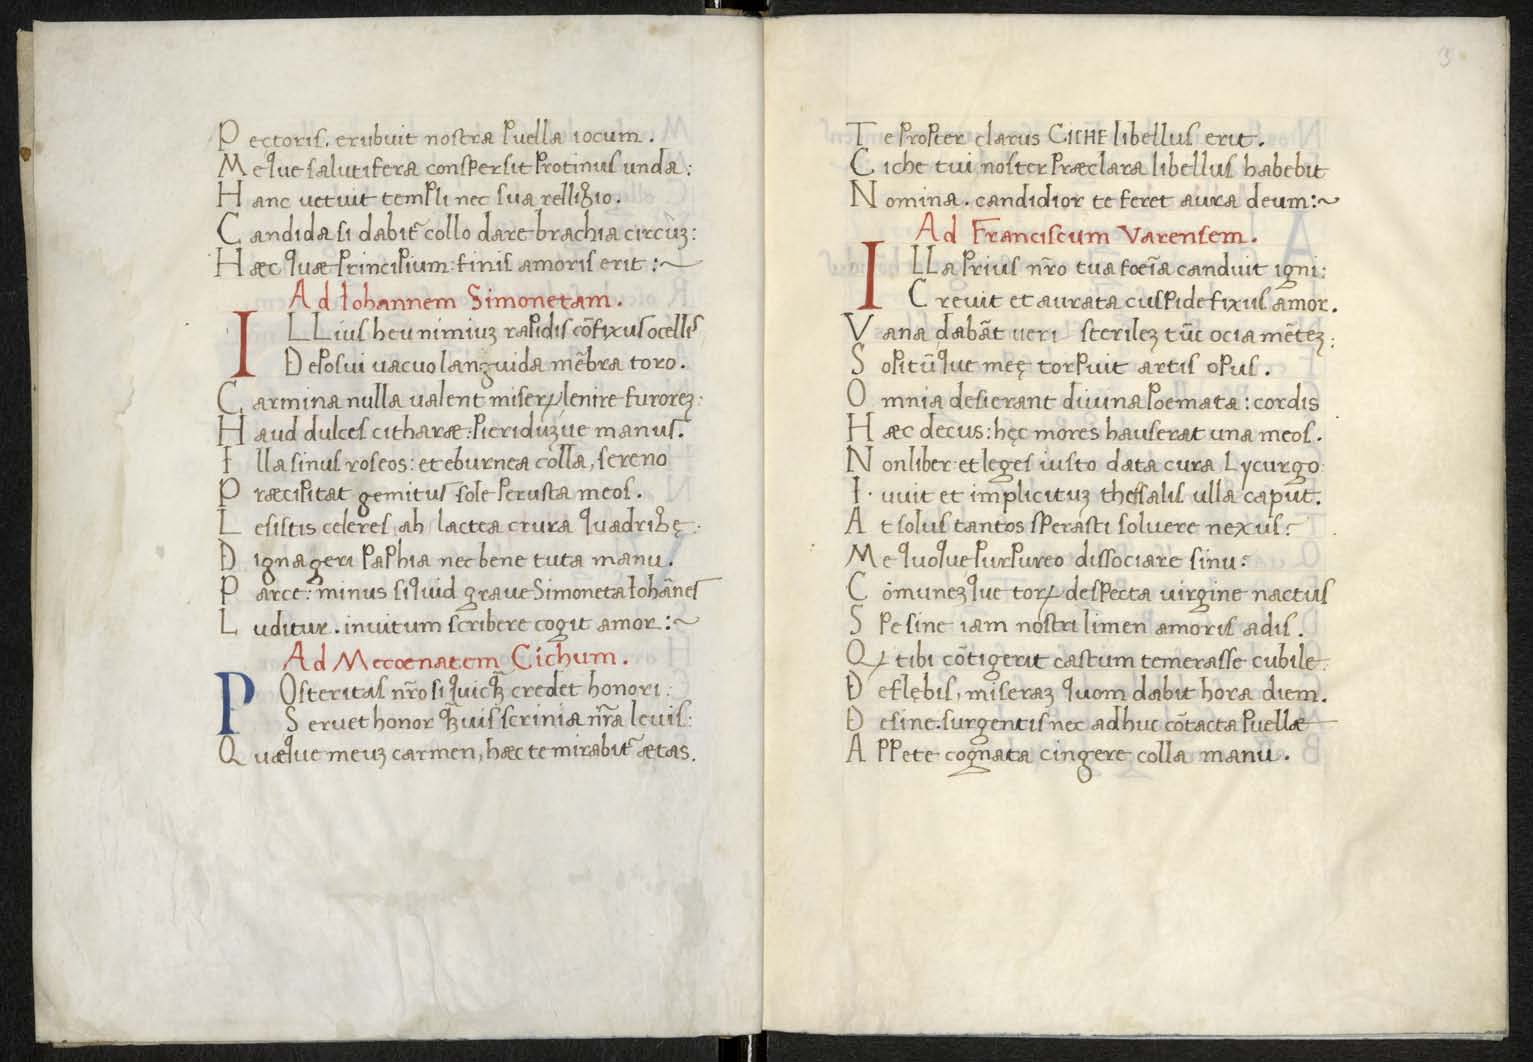 Pectoris. erubuit nostra puella iocum.
Meque salutifera conspersit protinus unda:
Hanc uetuit templi nec sua relligio.
Candida si dabit᷑ collo dare brachia circùʒ:
Hæc quæ principium: finis amoris erit:~
Ad Iohannem Simonetam.
ILLius heu nimiuʒ rapidis cōfixus ocellis
Deposui uacuo languida mēbra toro.
Carmina nulla ualent miseꝝ lenire furoreʒ:
Haud dulces citharæ: pieriduʒue manus.
Illa sinus roseos: et eburnea colla, sereno
Præcipitat gemitus sole perusta meos.
Lesistis celeres, ah lactea crura quadrigę:
Digna geri paphia nec bene tuta manu.
Parce: minus siquid graue Simoneta Iohānes
Luditur. inuitum scribere cogit amor:~
Ad Mecœnatem Cichum.
POsteritas nr̄o si quicꝗ credet honori:
Seruet honor ꝗuis scrinia nr̄a leuis:
Quæque meuʒ carmen, hæc te mirabit᷑ ætas.
3
Te propter clarus CICHE libellus erit.
Ciche tui noster præclara libellus habebit
Nomina. candidior te feret aura deum:~
Ad Franciscum Varensem.
ILLa prius nr̄o tua foēia canduit igni:
Creuit et aurata cuspide fixus amor.
Vana dabāt ueri sterileʒ tūc ocia mēteʒ:
Sopitūque meę torpuit artis opus.
Omnia desierant diuina poemata: cordis
Hæc decus: hęc mores hauserat una meos.
Non liber et leges iusto data cura Lycurgo
I.uuit et implicituʒ thessalis ulla caput.
At solus tantos sperasti soluere nexus:
Me quoque purpureo dissociare sinu:
Cōmuneʒque toꝝ despecta uirgine nactus
Spe sine iam nostri limen amoris adis.
Qꝝ tibi cōtigerit castum temerasse cubile.
Deflębis, miseraʒ quom dabit hora diem.
Desine: surgentis nec adhuc cōtacta puellæ
Appete cognata cingere colla manu.